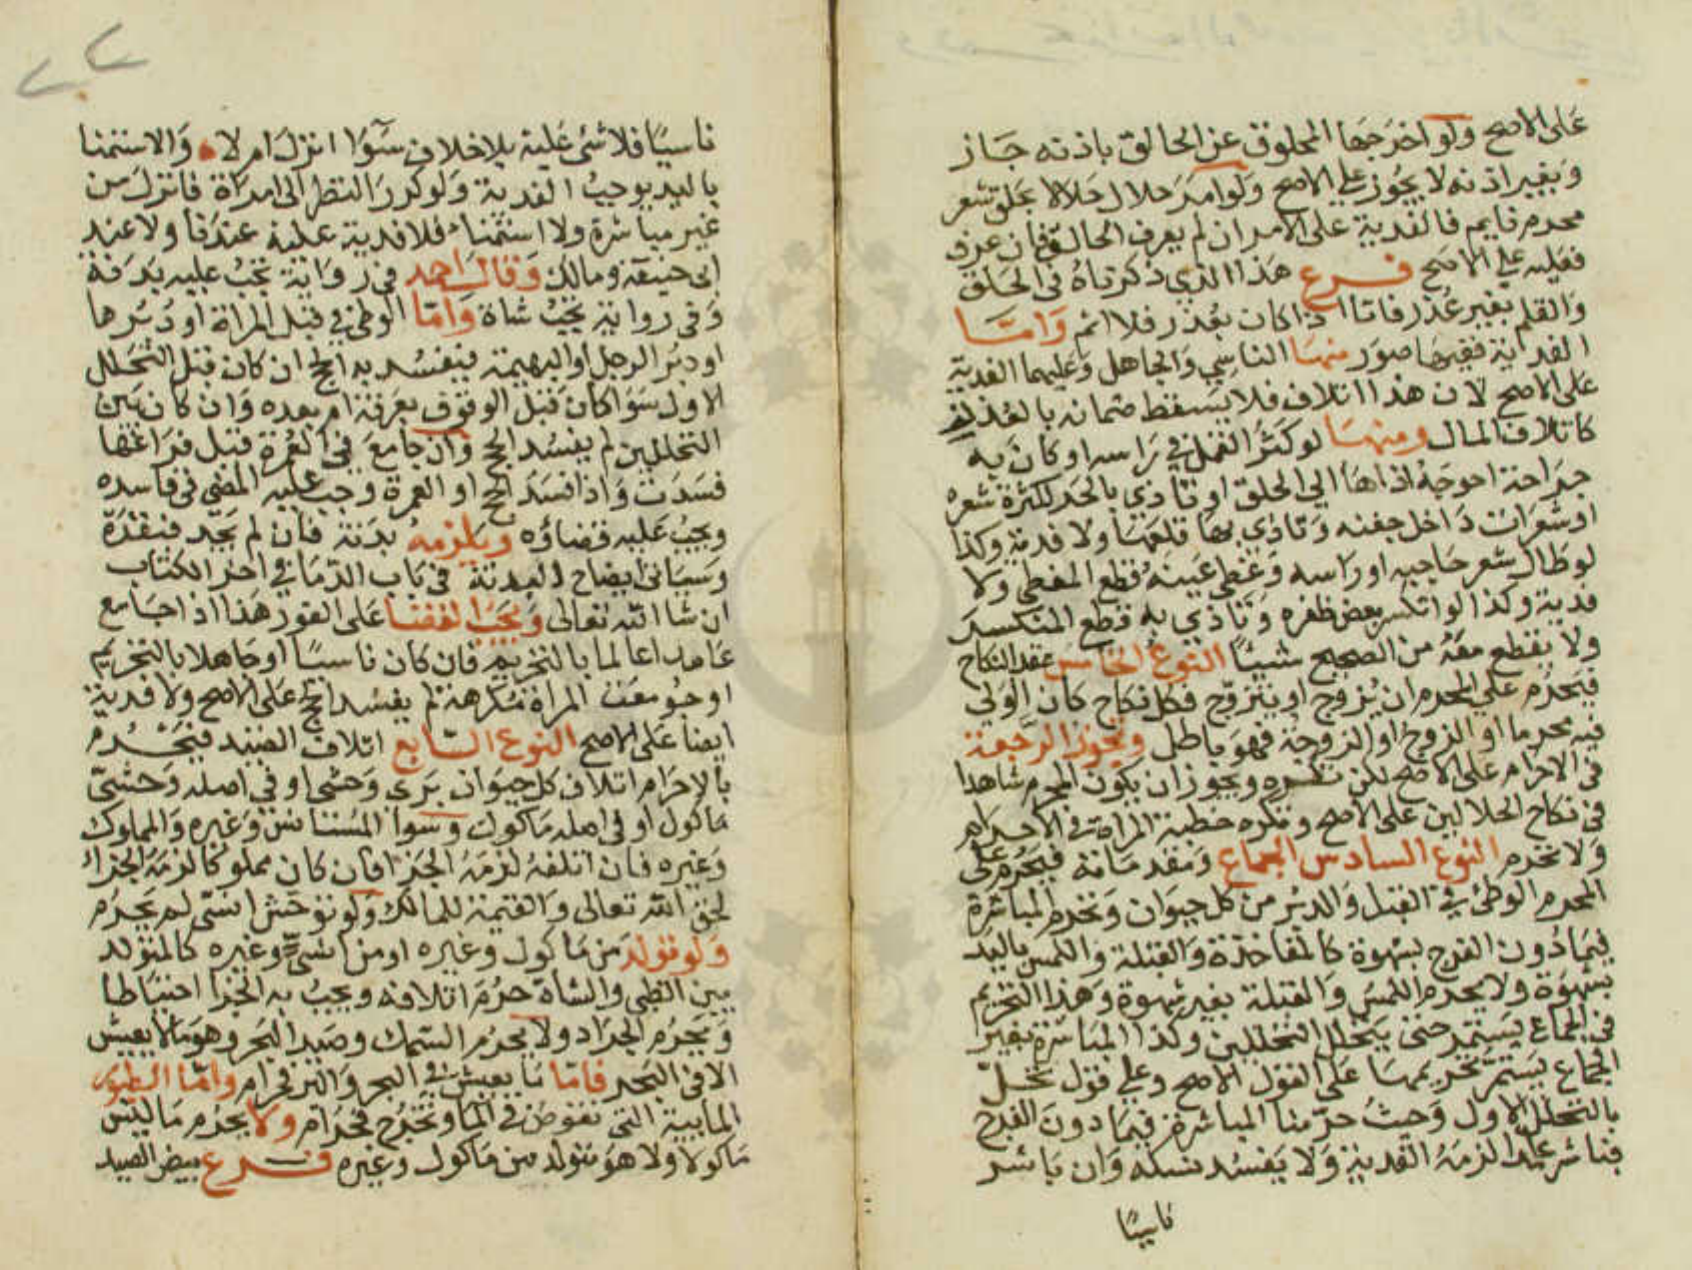 على الاصح ولو اخرجها المحلوق عن الحالق باذنه جاز
وبغير اذنه لا يجوز على الاصح ولو امر حلال حلالا بحلق شعر
محرم نايم فالفدية على الامر ان لم يعرف الحالق فان عرف
فعليه على الاصح فرع هذا الذي ذكرناه في الحلق
والقلم بغير عذر فاما اذا كان بعذر فلا اثم واما
الفدية ففيها صور منها الناسي والجاهل وعليهما الفدية
على الاصح لان هذا اتلاف فلا يسقط ضمانه بالعذر
كاتلاف المال ومنها لو كثر القمل في راسه او كان به
جراحة احوجه اذاها الي الحلق او تاذي بالحر لكثرة شعره
او شعرات داخل جفنه وتاذي بها قلعها ولا فدية وكذا
لو طال شعر حاجبه او راسه وغطى عينه قطع المغطي ولا
فدية وكذا لو انكسر بعض ظفره وتاذي به قطع المنكسر
ولا يقطع معه من الصحيح شيئا النوع الخامس عقد النكاح
فيحرم علي المحرم ان يزوج او يتزوج فكل نكاح كان الولي
فيه محرما او الزوج او الزوجة فهو باطل وتجوز الرجعة
في الاحرام على الاصح لكن تكره ويجوز ان يكون المحرم شاهدا
في نكاح الحلالين على الاصح وتكره خطبة المراة في الاحرام
ولا تحرم النوع السادس الجماع ومقدماته فيحرم على
المحرم الوطئ في القبل والدبر من كل حيوان وتحرم المباشرة
فيما دون الفرج بشهوة كالمفاخذة والقبلة واللمس باليد
بشهوة ولا يحرم اللمس والقبلة بغير شهوة وهذا التحريم
في الجماع يستمر حتى يتحلل التحللين وكذا المباشرة بغير
الجماع يستمر تحريمها على القول الاصح وعلى قول تحل
بالتحلل الاول وحيث حرمنا المباشرة فيما دون الفرج
فباشر عامدا لزمه الفدية ولا يفسد نسكه وان باشر
ناسيا
ناسيا فلا شئ عليه بلا خلاف سوا انزل ام لا والاستمنا
باليد يوجب الفدية ولو كرر النظر الى امراة فانزل من
غير مباشرة ولا استمناء فلا فدية عليه عندنا ولا عند
ابي حنيفة ومالك وقال احمد في رواية تجب عليه بدنة
وفي رواية تجب شاة واما الوطئ في قبل المراة او دبرها
او دبر الرجل او البهيمة فيفسد به الحج ان كان قبل التحلل
الاول سوا كان قبل الوقوف بعرفة ام بعده وان كان بين
التحللين لم يفسد الحج وان جامع في العمرة قبل فراغها
فسدت واذا فسد الحج او العمرة وجب عليه المضي في فاسده
ويجب عليه قضاؤه ويلزمه بدنة فان لم يجد فبقرة
وسياتي ايضاح البدنة في باب الدما في اخر الكتاب
ان شا الله تعالى ويجب القضا على الفور هذا اذا جامع
عامدا عالما بالتحريم فان كان ناسيا او جاهلا بالتحريم
او جومعت المراة مكرهة لم يفسد الحج على الاصح ولا فدية
ايضا على الاصح النوع السابع اتلاف الصيد فيحرم
بالاحرام اتلاف كل حيوان بري وحشي او في اصله وحشي
ماكول او في اصله ماكول وسوا المستانس وغيره والمملوك
وغيره فان اتلفه لزمه الجزا فان كان مملوكا لزمه الجزاء
لحق الله تعالى والقيمة للمالك ولو توحش انسي لم يحرم
ولو تولد من ماكول وغيره او من انسي وغيره كالمتولد
بين الظبي والشاة حرم اتلافه ويجب به الجزا احتياطا
ويحرم الجراد ولا يحرم السمك وصيد البحر وهو مالا يعيش
الا في البحر فاما ما يعيش في البحر والبر فحرام واما الطيور
المايية التي تغوص في الما وتخرج فحرام ولا يحرم ما ليس
ماكولا ولا هو متولد من ماكول وغيره فرع بيض الصيد